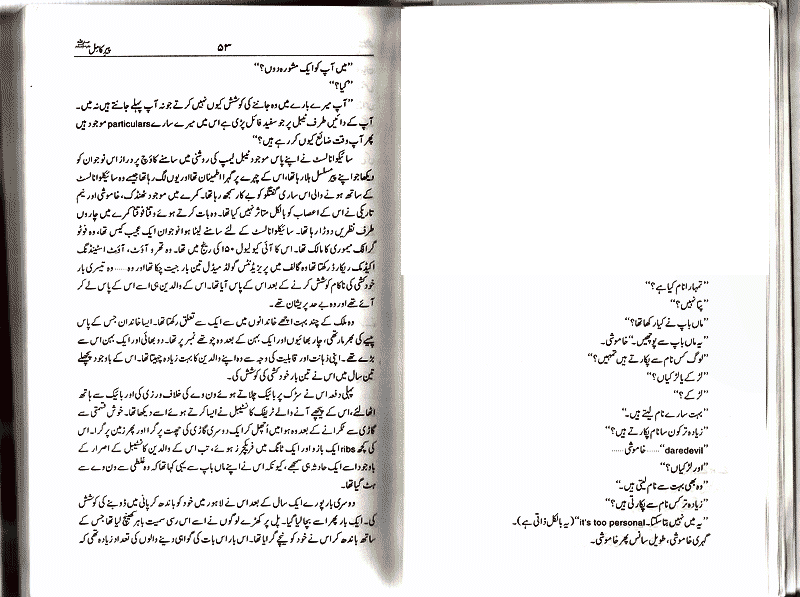 ”تمہارا نام کیا ہے؟“
”پتا نہیں؟“
”ماں باپ نے کیا رکھا تھا؟“
”یہ ماں باپ سے پوچھیں۔“ خاموشی۔
”لوگ کس نام سے پکارتے ہیں تمہیں؟“
”لڑکے یا لڑکیاں؟“
”لڑکے؟“
”بہت سارے نام لیتے ہیں۔“
”زیادہ تر کون سا نام پکارتے ہیں؟“
”daredevil“ ...... خاموشی ......
”اور لڑکیاں؟“
”وہ بھی بہت سے نام لیتی ہیں۔“
”زیادہ تر کس نام سے پکارتی ہیں؟“
”یہ میں نہیں بتا سکتا۔ it's too personal“ (یہ بالکل ذاتی ہے)۔
گہری خاموشی، طویل سانس پھر خاموشی۔
پیرِ کاملؐ ۵۳
”میں آپ کو ایک مشورہ دوں؟“
”کیا؟“
”آپ میرے بارے میں وہ جاننے کی کوشش کیوں نہیں کرتے جو نہ آپ پہلے جانتے ہیں نہ میں۔
آپ کے دائیں طرف ٹیبل پر جو سفید فائل پڑی ہے اس میں میرے سارے particulars موجود ہیں
پھر آپ وقت ضائع کیوں کر رہے ہیں؟“
سائیکوانالسٹ نے اپنے پاس موجود ٹیبل لیمپ کی روشنی میں سامنے کاؤچ پر دراز اس نوجوان کو
دیکھا جو اپنے پیر مسلسل ہلا رہا تھا، اس کے چہرے پر گہرا اطمینان تھا اور یوں لگ رہا تھا جیسے وہ سائیکوانالسٹ
کے ساتھ ہونے والی اس ساری گفتگو کو بے کار سمجھ رہا تھا۔ کمرے میں موجود ٹھنڈک، خاموشی اور نیم
تاریکی نے اس کے اعصاب کو بالکل متاثر نہیں کیا تھا۔ وہ بات کرتے ہوئے وقتاً فوقتاً کمرے میں چاروں
طرف نظریں دوڑا رہا تھا۔ سائیکوانالسٹ کے لئے سامنے لیٹا ہوا نوجوان ایک عجیب کیس تھا، وہ فوٹو
گرافک میموری کا مالک تھا۔ اس کا آئی کیو لیول ۱۵۰ کی رینج میں تھا۔ وہ تھرو آؤٹ، آؤٹ اسٹینڈنگ
اکیڈمک ریکارڈ رکھتا تھا وہ گالف میں پریزیڈنٹس گولڈ میڈل تین بار جیت چکا تھا اور وہ ...... وہ تیسری بار
خودکشی کی ناکام کوشش کرنے کے بعد اس کے پاس آیا تھا۔ اس کے والدین ہی اسے اس کے پاس لے کر
آئے تھے اور وہ بے حد پریشان تھے۔
وہ ملک کے چند بہت اچھے خاندانوں میں سے ایک سے تعلق رکھتا تھا۔ ایسا خاندان جس کے پاس
پیسے کی بھرمار تھی، چار بھائیوں اور ایک بہن کے بعد وہ چوتھے نمبر پر تھا۔ دو بھائی اور ایک بہن اس سے
بڑے تھے۔ اپنی ذہانت اور قابلیت کی وجہ سے وہ اپنے والدین کا بہت زیادہ چہیتا تھا۔ اس کے باوجود پچھلے
تین سال میں اس نے تین بار خودکشی کی کوشش کی۔
پہلی دفعہ اس نے سڑک پر بائیک چلاتے ہوئے ون وے کی خلاف ورزی کی اور بائیک سے ہاتھ
اٹھا لئے، اس کے پیچھے آنے والے ٹریفک کانسٹیبل نے ایسا کرتے ہوئے اسے دیکھا تھا۔ خوش قسمتی سے
گاڑی سے ٹکرانے کے بعد وہ ہوا میں اُچھل کر ایک دوسری گاڑی کی چھت پر گرا اور پھر زمین پر گرا۔ اس
کی کچھ ribs ایک بازو اور ایک ٹانگ میں فریکچرز ہوئے، تب اس کے والدین کانسٹیبل کے اصرار کے
باوجود اسے ایک حادثہ ہی سمجھے، کیونکہ اس نے اپنے ماں باپ سے یہی کہا تھا کہ وہ غلطی سے ون وے سے
ہٹ گیا تھا۔
دوسری بار پورے ایک سال کے بعد اس نے لاہور میں خود کو باندھ کر پانی میں ڈوبنے کی کوشش
کی۔ ایک بار پھر اسے بچا لیا گیا۔ پل پر کھڑے لوگوں نے اسے اس رسی سمیت باہر کھینچ لیا تھا جس کے
ساتھ باندھ کر اس نے خود کو نیچے گرایا تھا۔ اس بار اس بات کی گواہی دینے والوں کی تعداد زیادہ تھی کہ